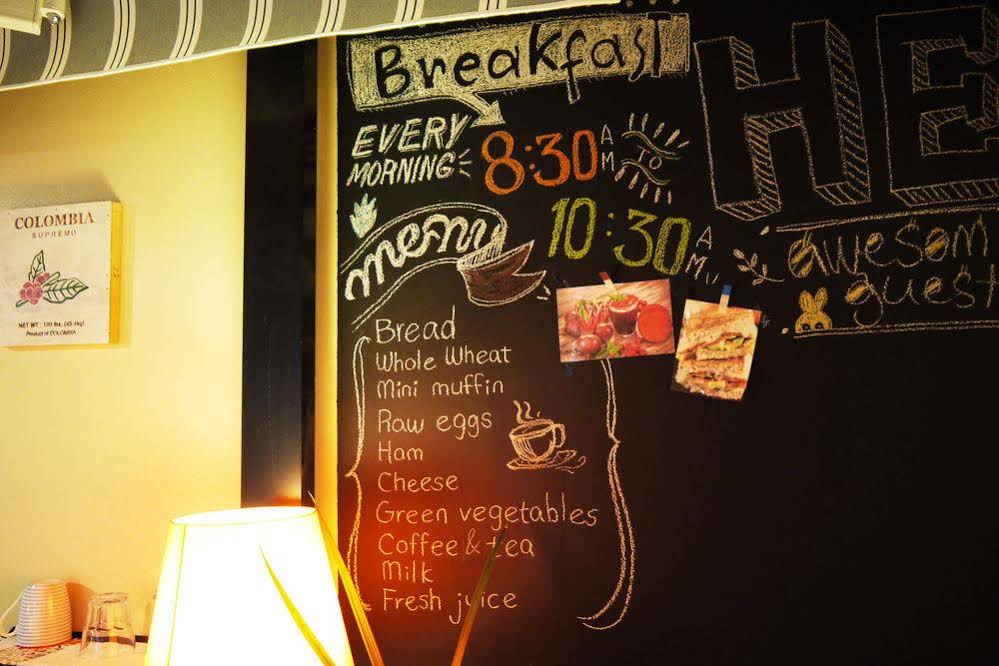 COLOMBIA
SUPREMO
NET WT : 100 lbs. (45.4kg)
Product of COLOMBIA
Breakfast
EVERY
MORNING
8:30 AM
TO
10:30 AM
menu
Bread
Whole Wheat
Mini muffin
Raw eggs
Ham
Cheese
Green vegetables
Coffee & tea
Milk
Fresh juice
HE
awesom
guest